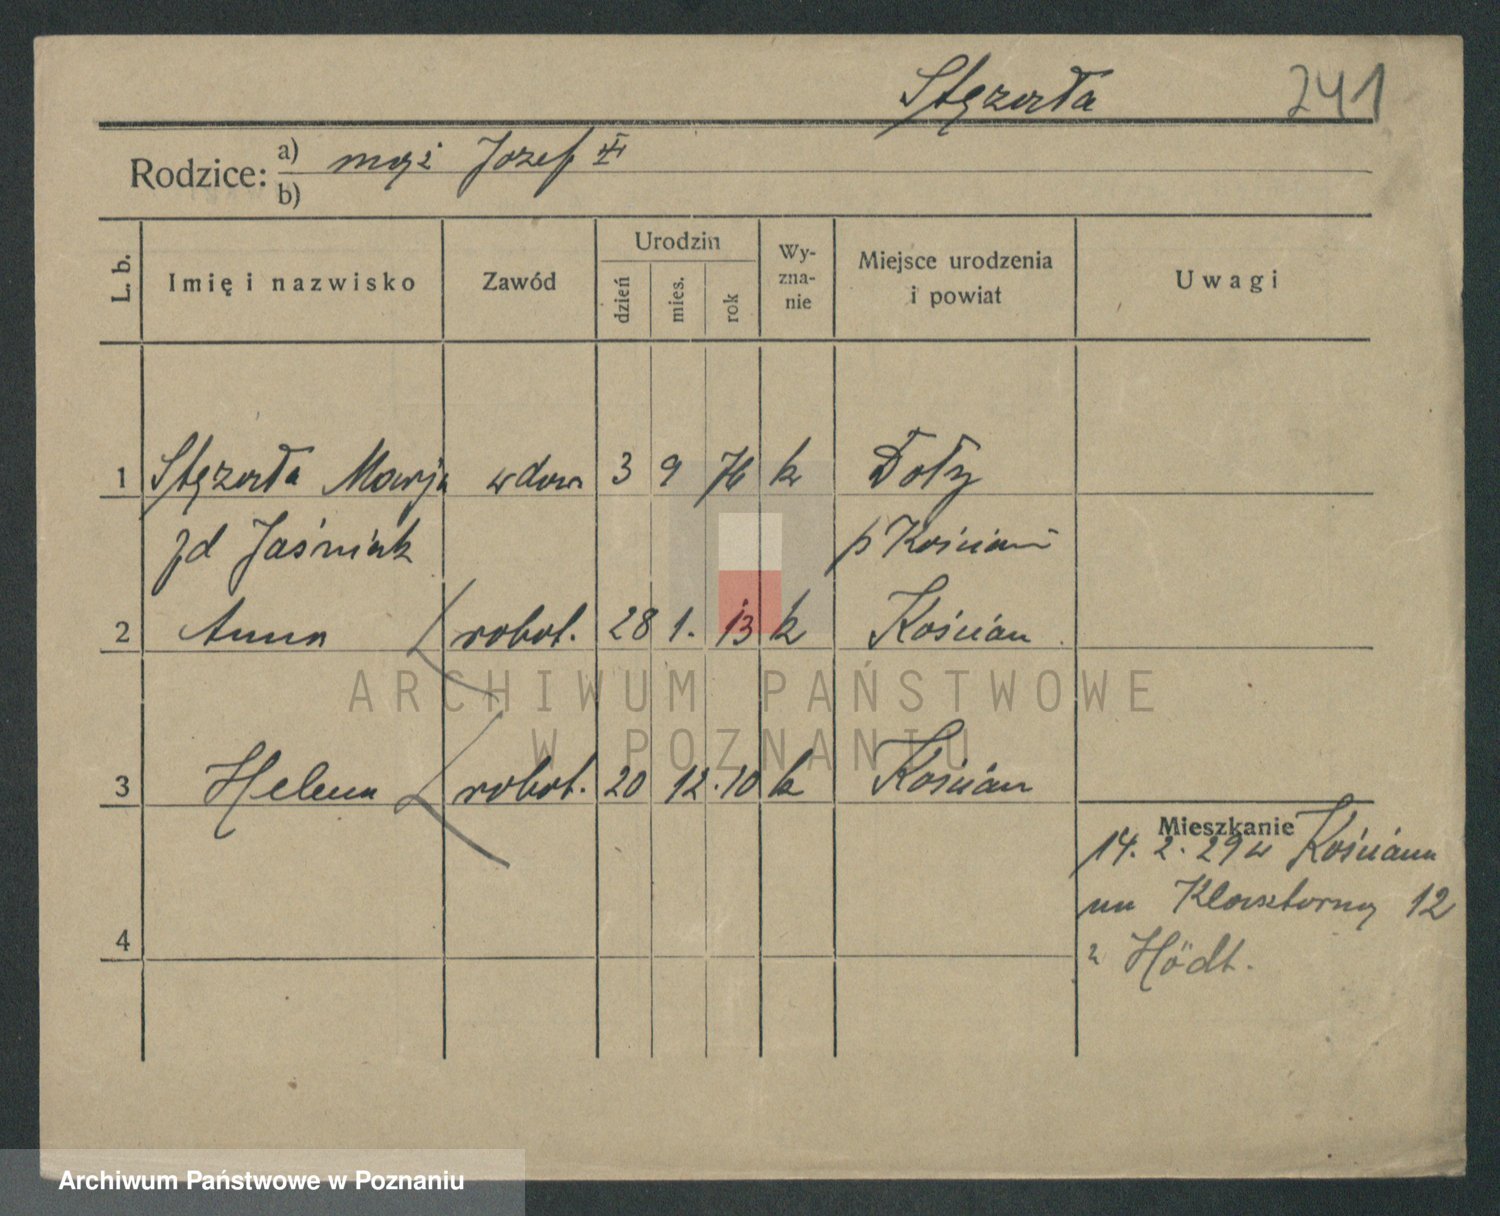 Stęzała 241
Rodzice: a) mąż Jozef
b)
L. b. Imię i nazwisko Zawód Urodzin dzień mies. rok Wy-zna-nie Miejsce urodzenia i powiat Uwagi
1 Stęzała Marja wdow. 3 9 76 k Doły
zd Jaśniak p Kościan
2 Anna robot. 28 1. 13 k Kościan
ARCHIWUM PAŃSTWOWE
W POZNANIU
3 Helena robot. 20 12. 10 k Kościan
Mieszkanie
14. 2. 29 w Kościanie
na Klasztorną 12
z Hödt.
4
Archiwum Państwowe w Poznaniu